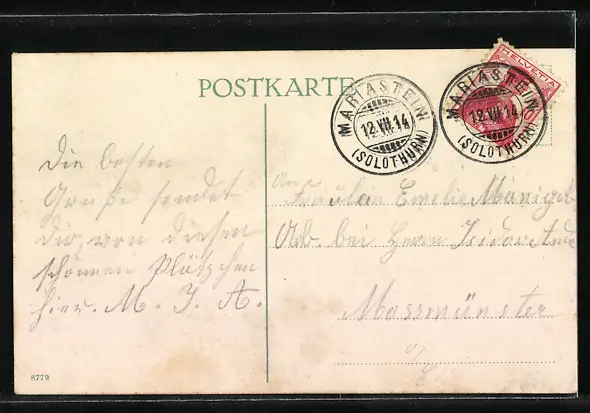 POSTKARTE
HELVETIA
MARIASTEIN
12.VII.14
(SOLOTHURN)
MARIASTEIN
12.VII.14
(SOLOTHURN)
Die besten
Grüße sendet
dir von diesem
schönen Plätzchen
hier. M. J. A.
An
Fräulein Emelie
Adb. bei Herrn Isidor
Massmünster
8779